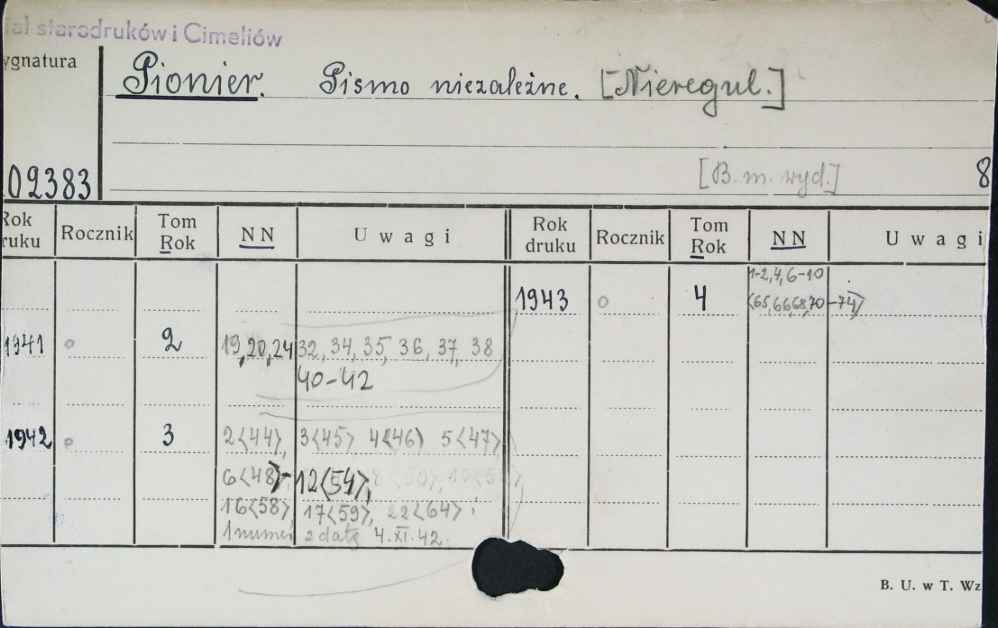 iał starodruków i Cimeliów
ygnatura
Pionier. Pismo niezależne. [Nieregul.]
02383
[B. m. wyd.]
8
Rok druku Rocznik Tom Rok NN Uwagi Rok druku Rocznik Tom Rok NN Uwagi
1943 o 4 1-2,4,6-10
<65,66,68,70-74>
1941 o 2 19,20,24 32, 34, 35, 36, 37, 38
40-42
1942 o 3 2<44>, 3<45> 4<46> 5<47>
6<48>-12<54>,
16<58>, 17<59>, 22<64> i
1 numer z datą 4.XI.42.
B. U. w T. Wz